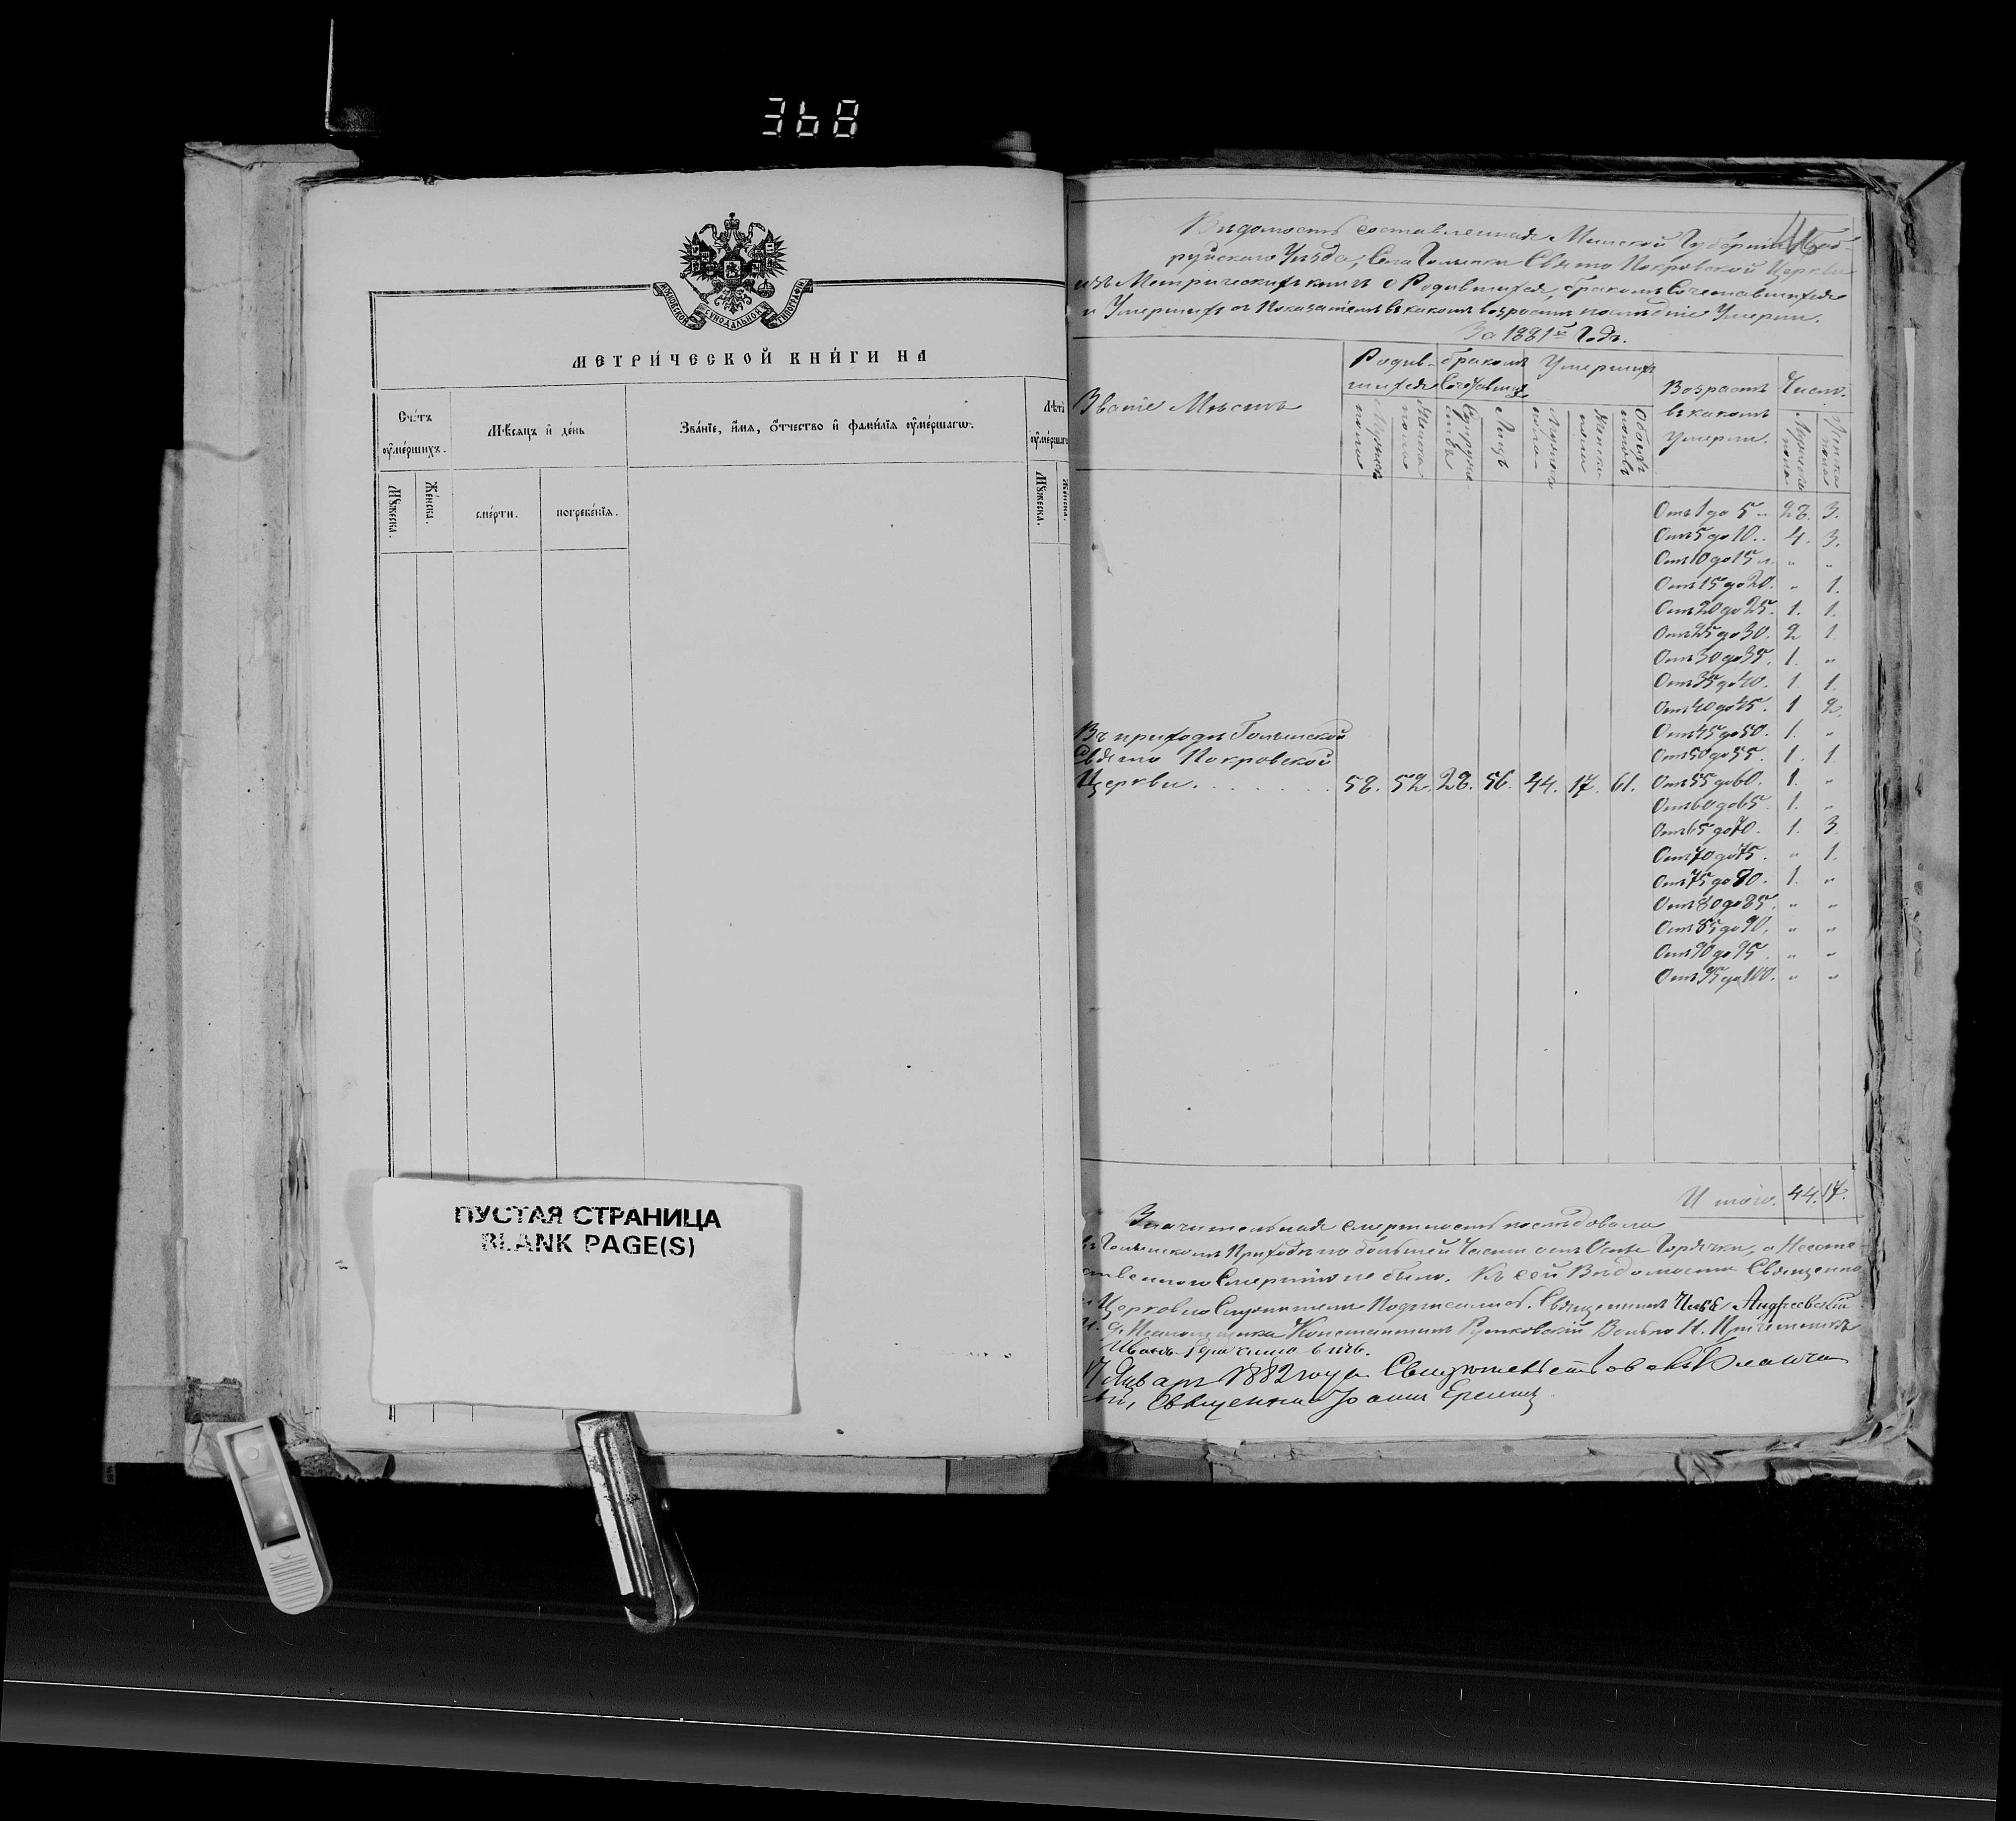 368
МОСКОВСКОЙ СѴНОДАЛЬНОЙ ТИПОГРАФІИ
МЕТРИ́ЧЕСКОЙ КНИ́ГИ НА
Сче́тъ
ᲂумершихъ.
Мѣсяцъ и҆ де́нь
Зва́нїе, и҆́мя, ѻ҆́тчество и҆ фами́лїя ᲂуме́ршагѡ.
Лѣта̀
Мꙋ́жеска.
Же́нска.
сме́рти.
погребе́нїя.
Мꙋ́жеска.
Же́нска.
ПУСТАЯ СТРАНИЦА
BLANK PAGE(S)
Вѣдомость составленная Минской Губерніи Боб-
руйскаго Уѣзда, Села Голынки Свято Покровской Церкви
изъ Метрическихъ книгъ о Родившихся, бракомъ Сочетавшихся
и Умершихъ съ Показаніемъ въ какомъ возрастѣ послѣдніе Умерли.
За 1881й Годъ.
Званіе Мѣстъ
Родив-
шихся
бракомъ
Умершихъ
Возрастъ
въ какомъ
умерли.
Число.
Мужеска
пола
Женска
пола
Супруже-
ствъ
Лицъ
Мужеска
пола
Женска
пола
Обоихъ
половъ
Мужеска
пола
Женска
пола
Отъ 1 до 5 " 28. 3.
Отъ 5 до 10.. 4. 3.
Отъ 10 до 15 " " "
Отъ 15 до 20. " 1.
Отъ 20 до 25. 1. 1.
Отъ 25 до 30. 2 1.
Отъ 30 до 35. 1. "
Отъ 35 до 40. 1 1.
Отъ 40 до 45. 1 2.
Отъ 45 до 50. 1. "
Отъ 50 до 55. 1. 1.
Въ приходѣ Голынской
Свято Покровской
Церкви. . . . . . . 58. 52. 28. 56. 44. 17. 61. Отъ 55 до 60. 1. "
Отъ 60 до 65. 1. "
Отъ 65 до 70. 1. 3.
Отъ 70 до 75. " 1.
Отъ 75 до 80. 1. "
Отъ 80 до 85. " "
Отъ 85 до 90. " "
Отъ 90 до 95. " "
Отъ 95 до 100. " "
Итого. 44. 17.
Значительная смертность послѣдовала
въ Голынскомъ Приходѣ по большей Части отъ Оспы Горячки, а Несте-
ственной Смертію не было. Къ сей Вѣдомости Священно
и Церковно Служители Подписались. Священникъ Андреевскій
Псаломщика Константинъ Рутковскій
17 Января 1882 года Свидѣтельствовалъ Благочин
ный, Священникъ Іоаннъ